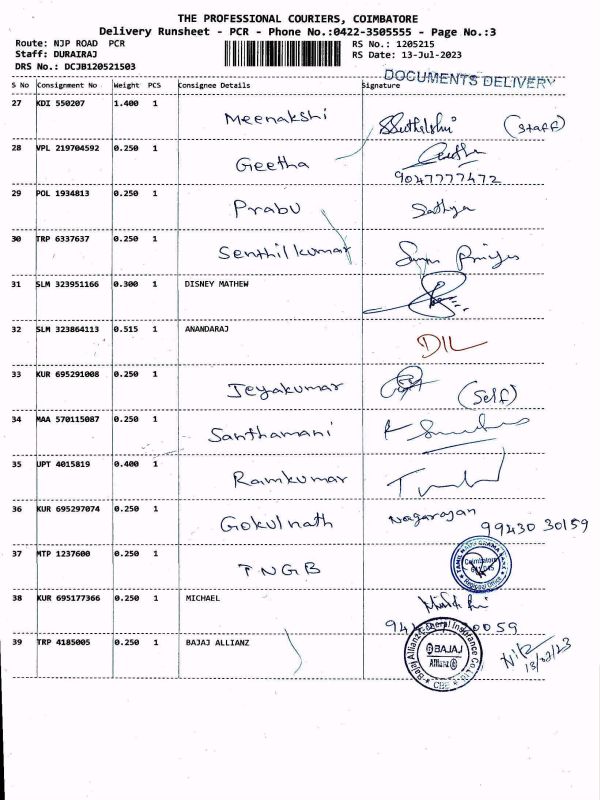 THE PROFESSIONAL COURIERS, COIMBATORE
Delivery Runsheet - PCR - Phone No.:0422-3505555 - Page No.:3
Route: NJP ROAD PCR RS No.: 1205215
Staff: DURAIRAJ RS Date: 13-Jul-2023
DRS No.: DCJB120521503
DOCUMENTS DELIVERY
S No Consignment No Weight PCS Consignee Details Signature
27 KDI 550207 1.400 1 Meenakshi (Staff)
28 VPL 219704592 0.250 1 Geetha Geetha
9047777472
29 POL 1934813 0.250 1 Prabu Sathya
30 TRP 6337637 0.250 1 Senthil kumar
31 SLM 323951166 0.300 1 DISNEY MATHEW
32 SLM 323864113 0.515 1 ANANDARAJ DIL
33 KUR 695291008 0.250 1 Jeyakumar (Self)
34 MAA 570115087 0.250 1 Santhamani
35 UPT 4015819 0.400 1 Ramkumar
36 KUR 695297074 0.250 1 Gokulnath Nagarajan
99430 30159
37 MTP 1237600 0.250 1 TNGB
38 KUR 695177366 0.250 1 MICHAEL
39 TRP 4185005 0.250 1 BAJAJ ALLIANZ
Bajaj Allianz General Insurance Co Ltd
BAJAJ
Allianz
CBE
13/07/23